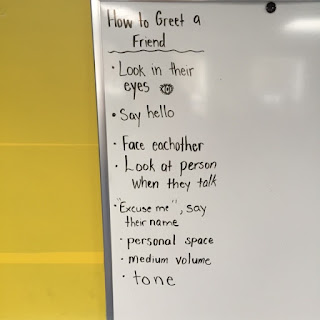 How to Greet a
Friend
• Look in their
eyes
• Say hello
• Face eachother
• Look at person
when they talk
• "Excuse me", say
their name
• personal space
• medium volume
• tone